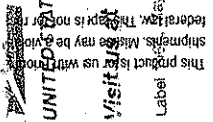 This product is us with
shipments. Misuse may be a viola
federal law. This wrap is not for re
UNITED STAT
Visit us at
Label